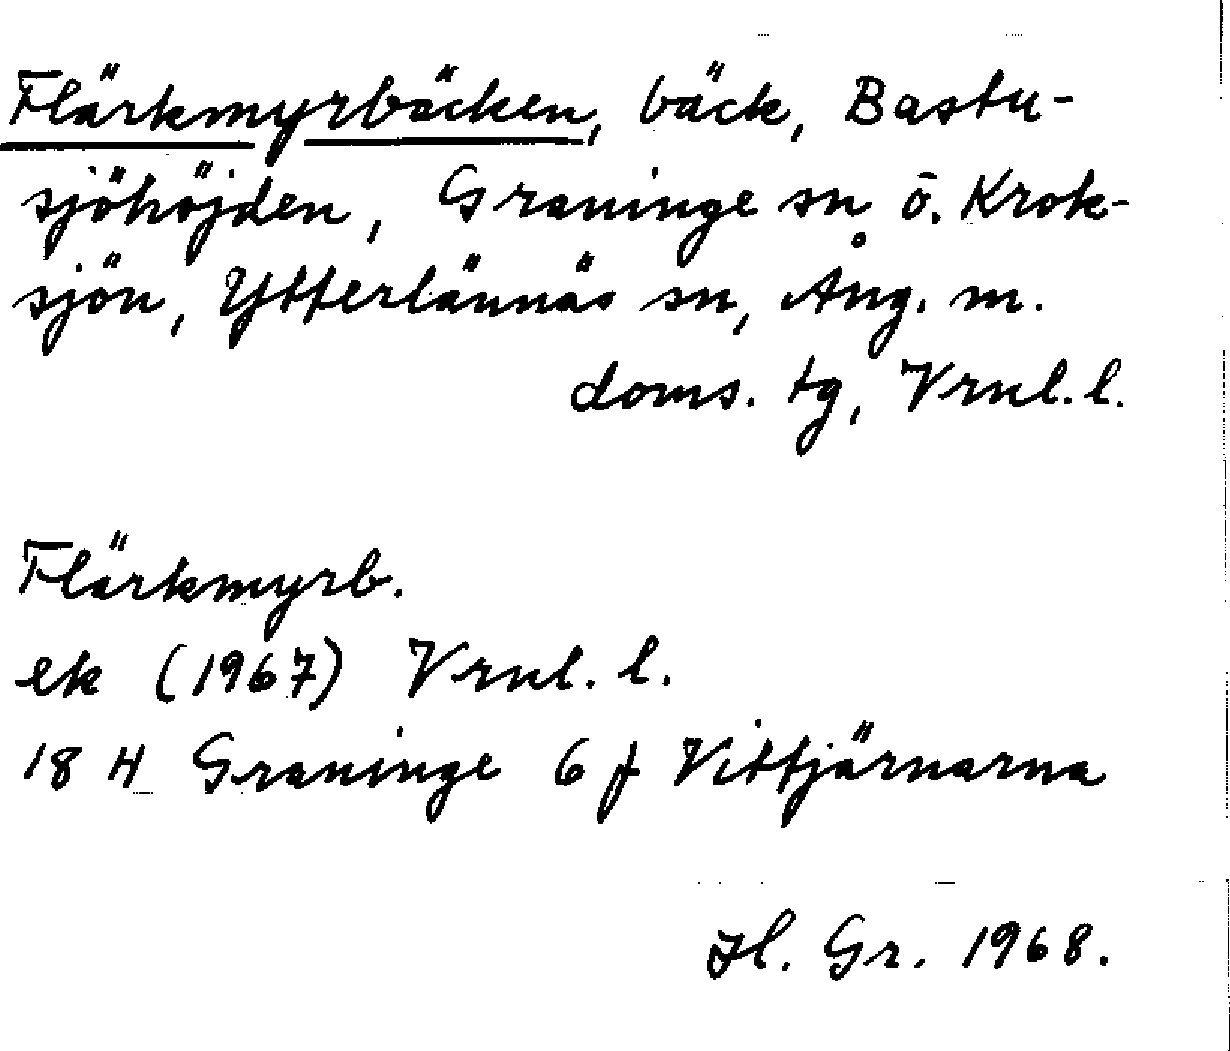 Flärkmyrbäcken, bäck, Bastu-
sjöhöjden, Graninge sn o. Krok-
sjön, Ytterlännäs sn, Ång. m.
doms. tg, Vrnl. l.
Flärkmyrb.
ek (1967) Vrnl. l.
18 H Graninge 6 f Vittjärnarna
Hl. Gr. 1968.